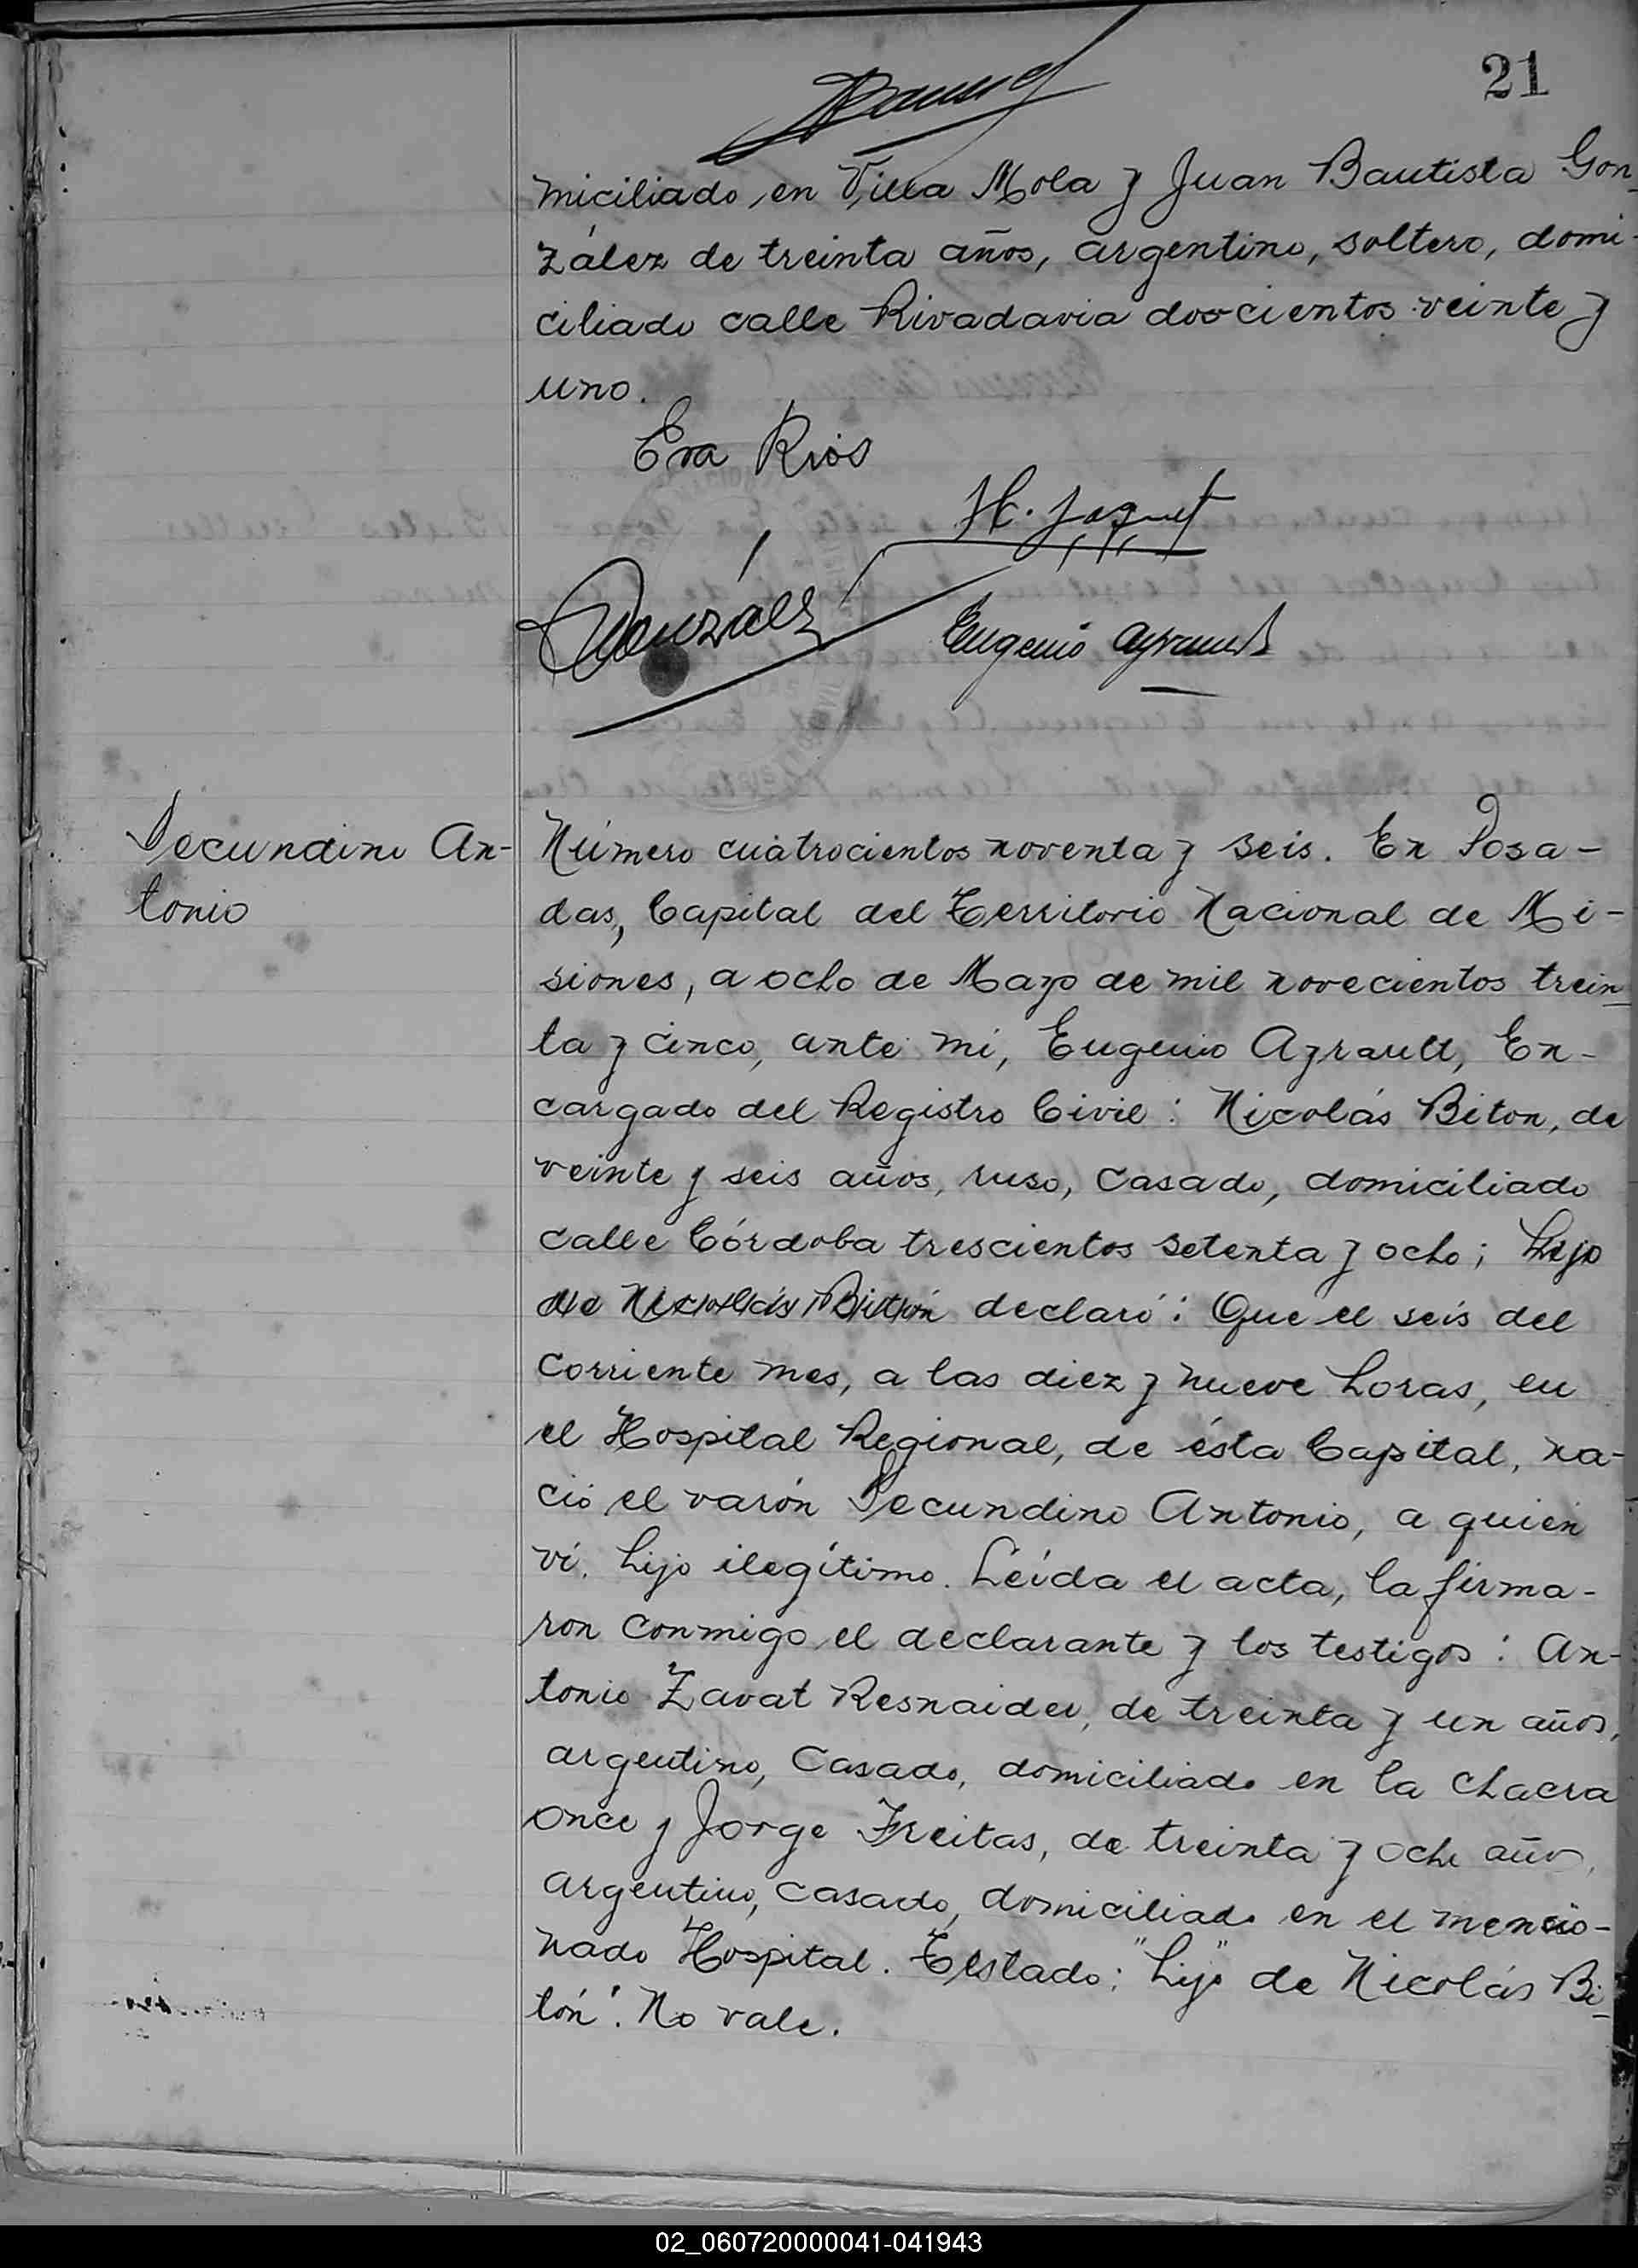 21
miciliado, en Villa Mola y Juan Bautista Gon-
zález de treinta años, argentino, soltero, domi-
ciliado calle Rivadavia doscientos veinte y
uno.
Eva Rios
H. Jaquet
González
Eugenio Ayrault
Secundino An-
tonio
Número cuatrocientos noventa y seis. En Posa-
das, Capital del Territorio Nacional de Mi-
siones, a ocho de Mayo de mil novecientos trein-
ta y cinco, ante mi, Eugenio Ayrault, En-
cargado del Registro Civil: Nicolás Biton, de
veinte y seis años, ruso, casado, domiciliado
calle Córdoba trescientos setenta y ocho; hijo
de Nicolás Bitón declaró: Que el seis del
corriente mes, a las diez y nueve horas, en
el Hospital Regional, de ésta Capital, na-
ció el varón Secundino Antonio, a quien
ví. hijo ilegítimo. Leída el acta, la firma-
ron conmigo el declarante y los testigos: An-
tonio Zavat Resnaider, de treinta y un años,
argentino, casado, domiciliado en la chacra
once y Jorge Freitas, de treinta y ocho años,
argentino, casado, domiciliado en el mencio-
nado Hospital. Testado: "hijo" de Nicolás Bi-
tón". No vale.
02_060720000041-041943